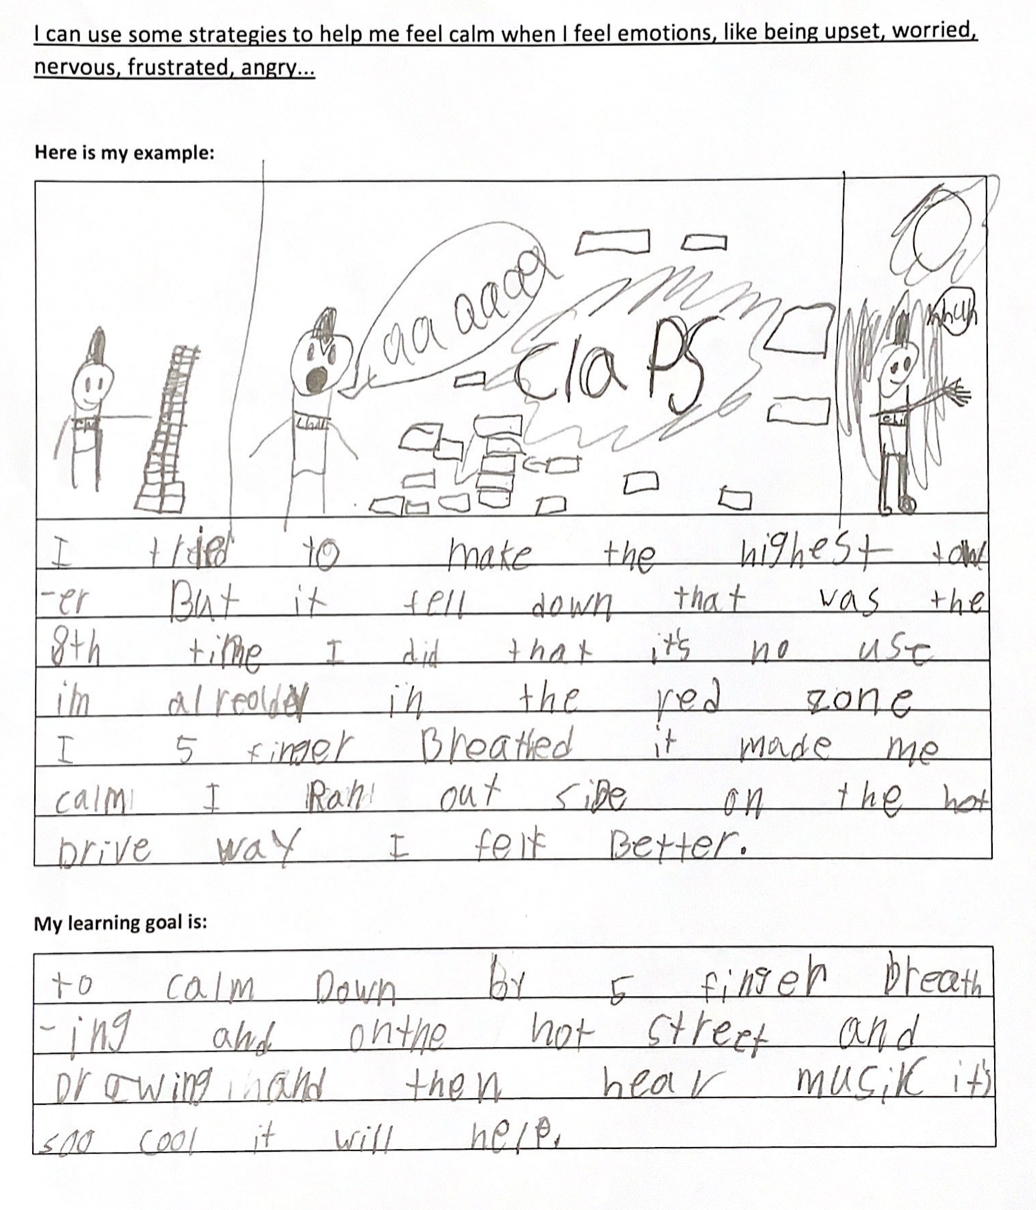 I can use some strategies to help me feel calm when I feel emotions, like being upset, worried,
nervous, frustrated, angry...
Here is my example:
aa aaaa
Claps
Chill
hhuh
I tried to make the highest tow
-er But it fell down that was the
8th time I did that it's no use
im already in the red zone
I 5 finger Breathed it made me
calm I Ran out side on the hot
Drive way I felt Better.
My learning goal is:
to calm Down by 5 finger breath
-ing and onthe hot street and
Drawing and then hear musik it's
soo cool it will help.